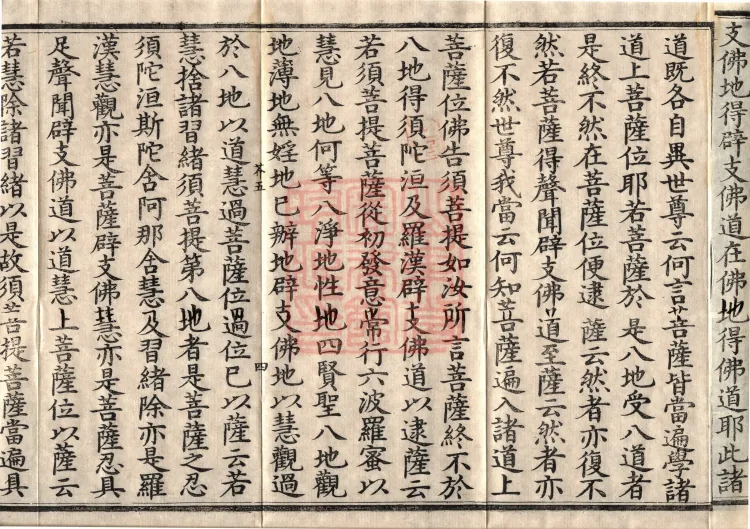 支佛地得辟支佛道在佛地得佛道耶此諸
道既各自異世尊云何言菩薩皆當遍學諸
道上菩薩位耶若菩薩於是八地受八道者
是終不然在菩薩位便逮薩云然者亦復不
然若菩薩得聲聞辟支佛道至薩云然者亦
復不然世尊我當云何知菩薩遍入諸道上
菩薩位佛告須菩提如汝所言菩薩終不於
八地得須陀洹及羅漢辟支佛道以逮薩云
若須菩提菩薩從初發意常行六波羅蜜以
慧見八地何等八淨地性地四賢聖八地觀
地薄地無婬地已辦地辟支佛地以慧觀過
芥五 四
於八地以道慧過菩薩位過位已以薩云若
慧捨諸習緒須菩提第八地者是菩薩之忍
須陀洹斯陀含阿那含慧及習緒除亦是羅
漢慧觀亦是菩薩辟支佛慧亦是菩薩忍具
足聲聞辟支佛道以道慧上菩薩位以薩云
若慧除諸習緒以是故須菩提菩薩當遍具